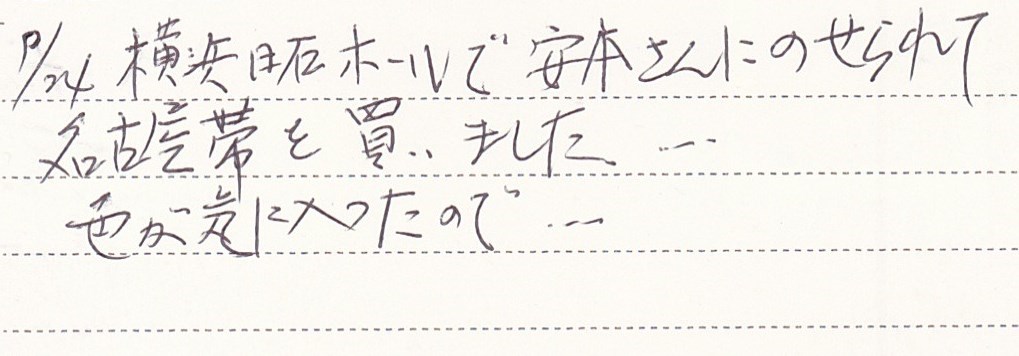 9/24 横浜日石ホールで安本さんにのせられて
名古屋帯を買いました…
色が気に入ったので…